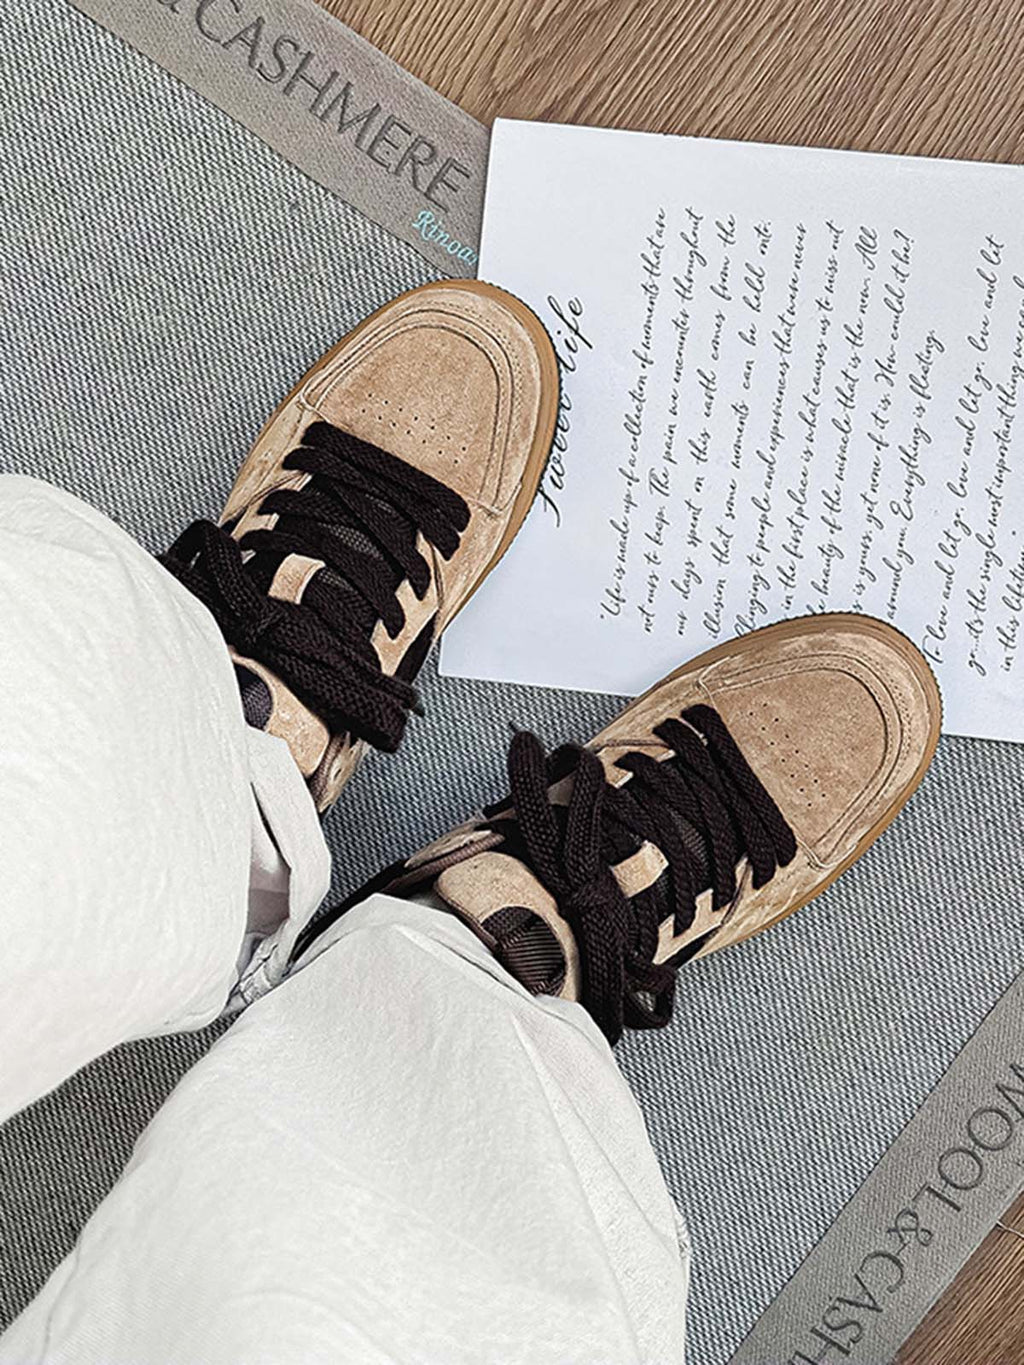 & CASHMERE
Rinoa
Sweet life
"Life is made up of a collection of moments that are
not ours to keep. The pain we encounter throughout
our days spent on this earth comes from the
illusion that some moments can be held onto.
Clinging to people and experiences that were never
in the first place is what causes us to miss out
beauty of the miracle that is the now. All
is yours, yet none of it is. How could it be?
around you. Everything is fleeting.
To love and let go, love and let go, love and let
go...it's the single most important thing we can
in this lifetime."
WOOL & CASH